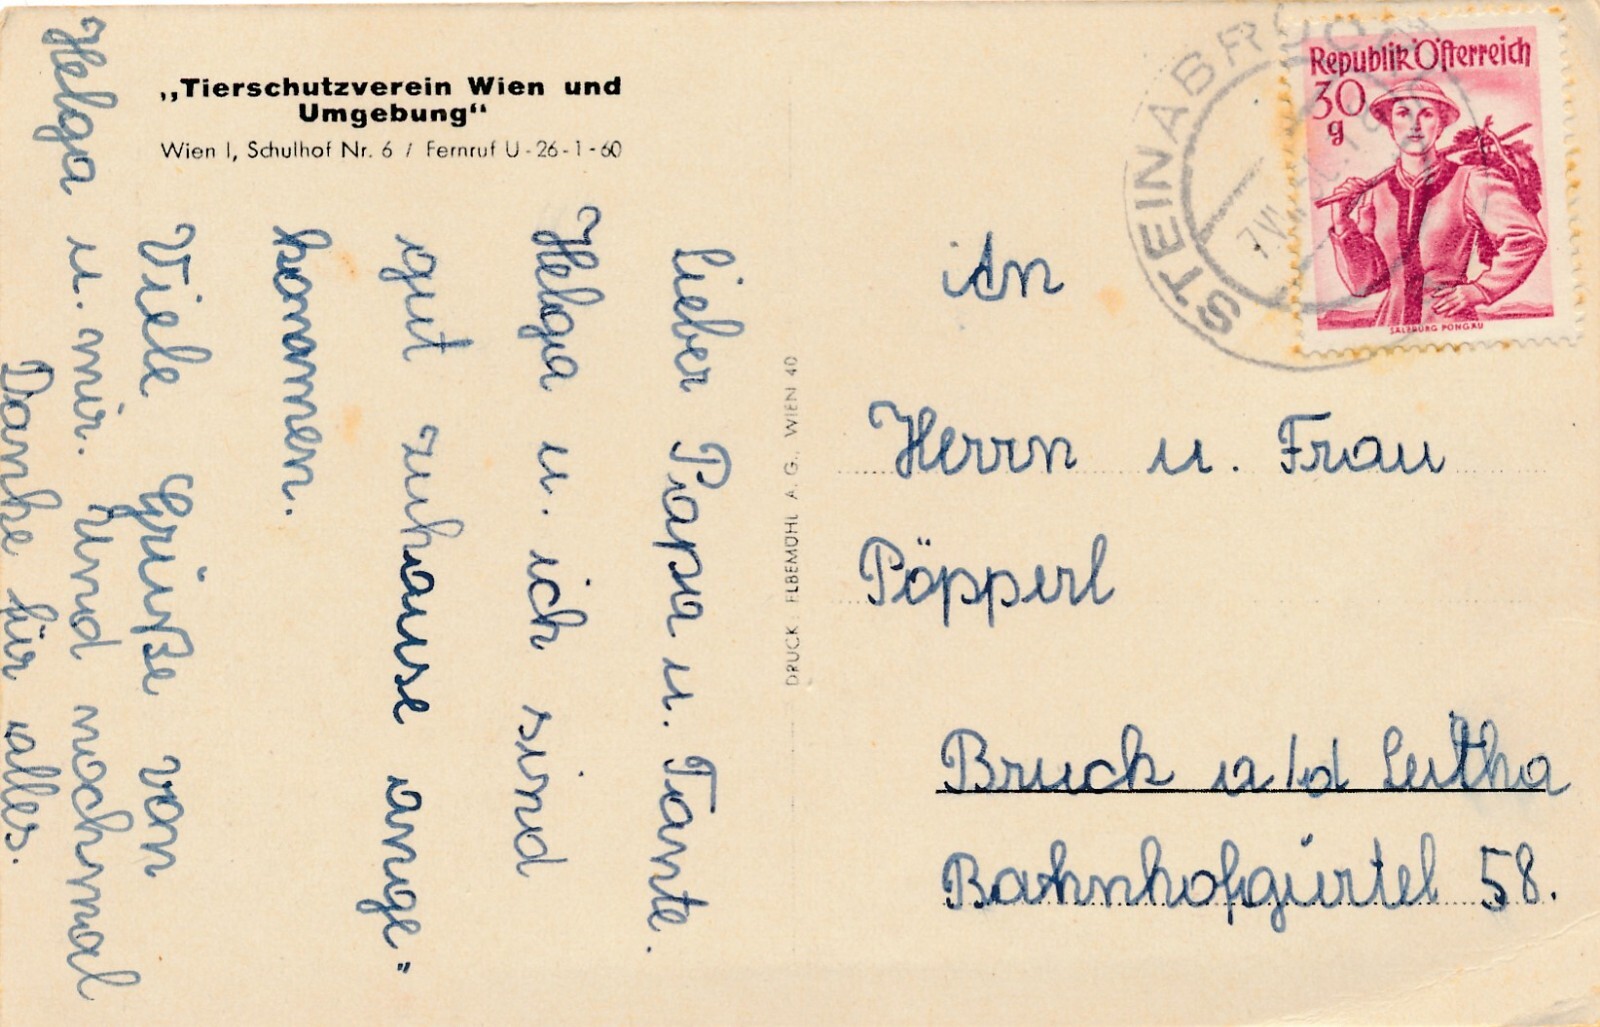 „Tierschutzverein Wien und
Umgebung“
Wien I, Schulhof Nr. 6 / Fernruf U-26-1-60
lieber Papa u. Tante.
Helga u. ich sind
gut zuhause ange"
kommen.
Viele Grüße von
Helga u. mir. Und nochmal
Danke für alles.
DRUCK ELBEMÜHL A. G., WIEN 40
STEINABRÜCKL
Republik Österreich
30
g
SALZBURG PONGAU
An
Herrn u. Frau
Pöpperl
Bruck a/d Leitha
Bahnhofgürtel 58.